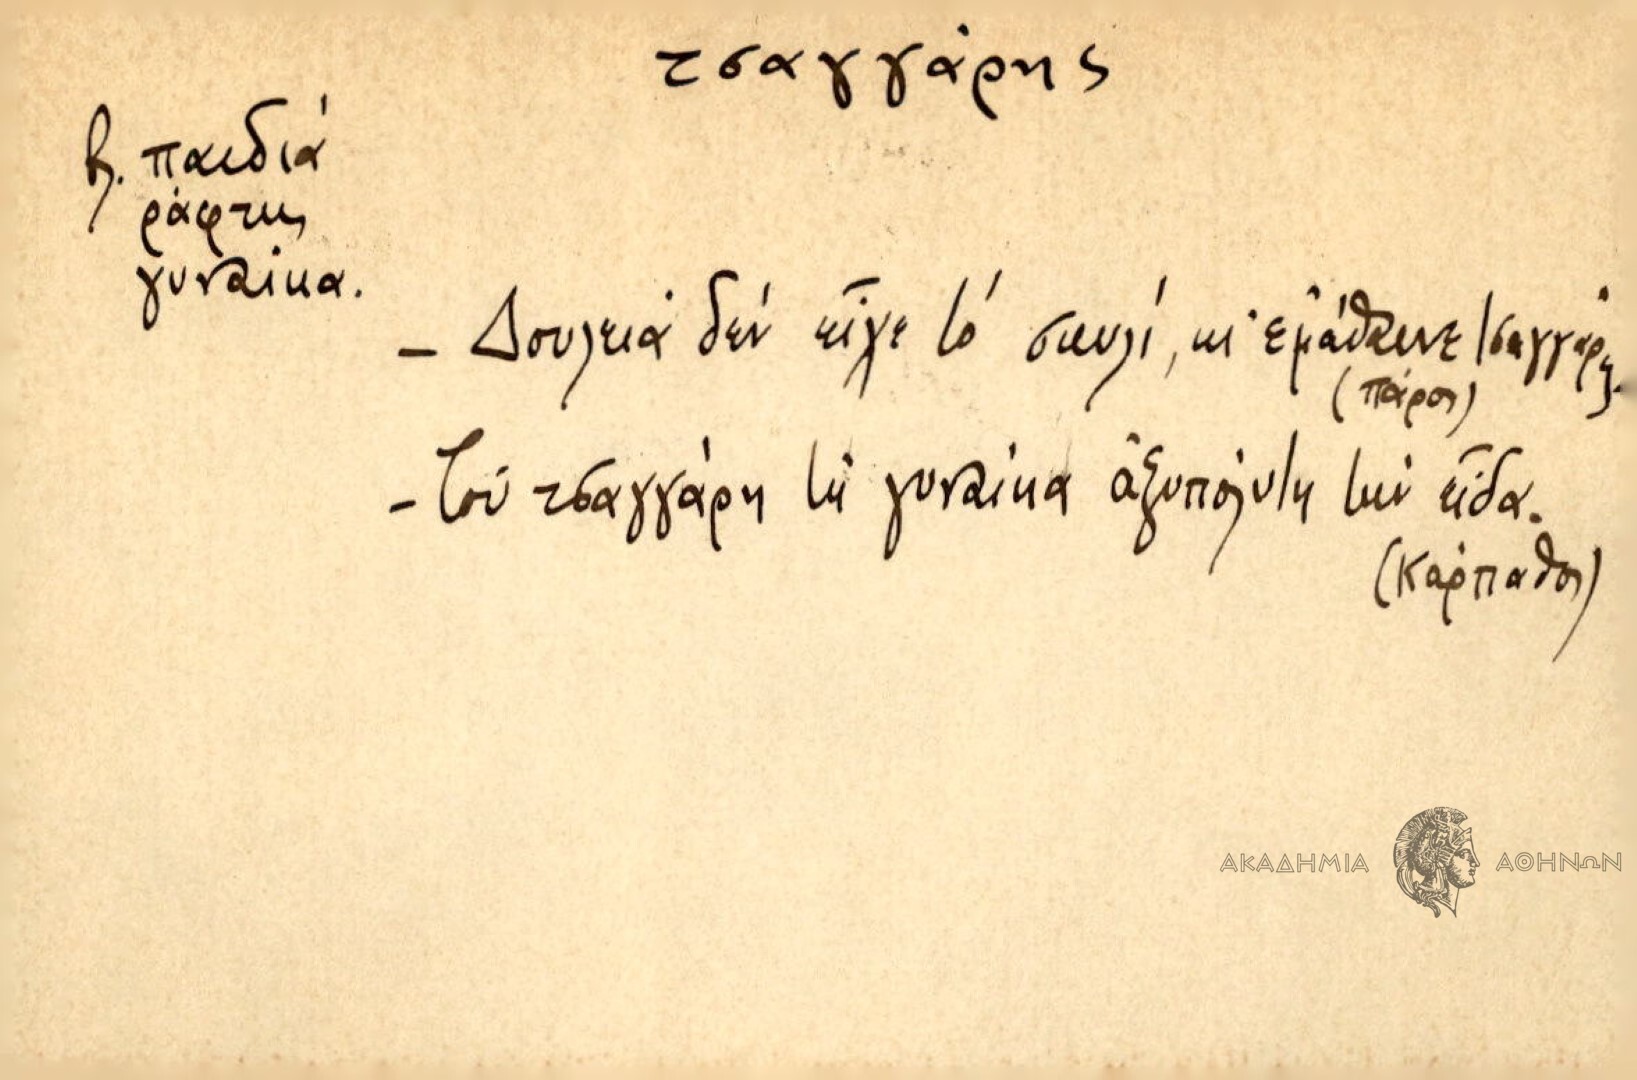 τσαγγάρης
β. παιδιά
ράφτης
γυναίκα.
– Δουλειά δέν εἶχε τό σκυλί, κι' ἐμάθαινε τσαγγάρης.
(Πάρος)
– Τοῦ τσαγγάρη τή γυναίκα ἀξυπόλυτη τήν εἶδα.
(Κάρπαθος)
ΑΚΑΔΗΜΙΑ ΑΘΗΝΩΝ